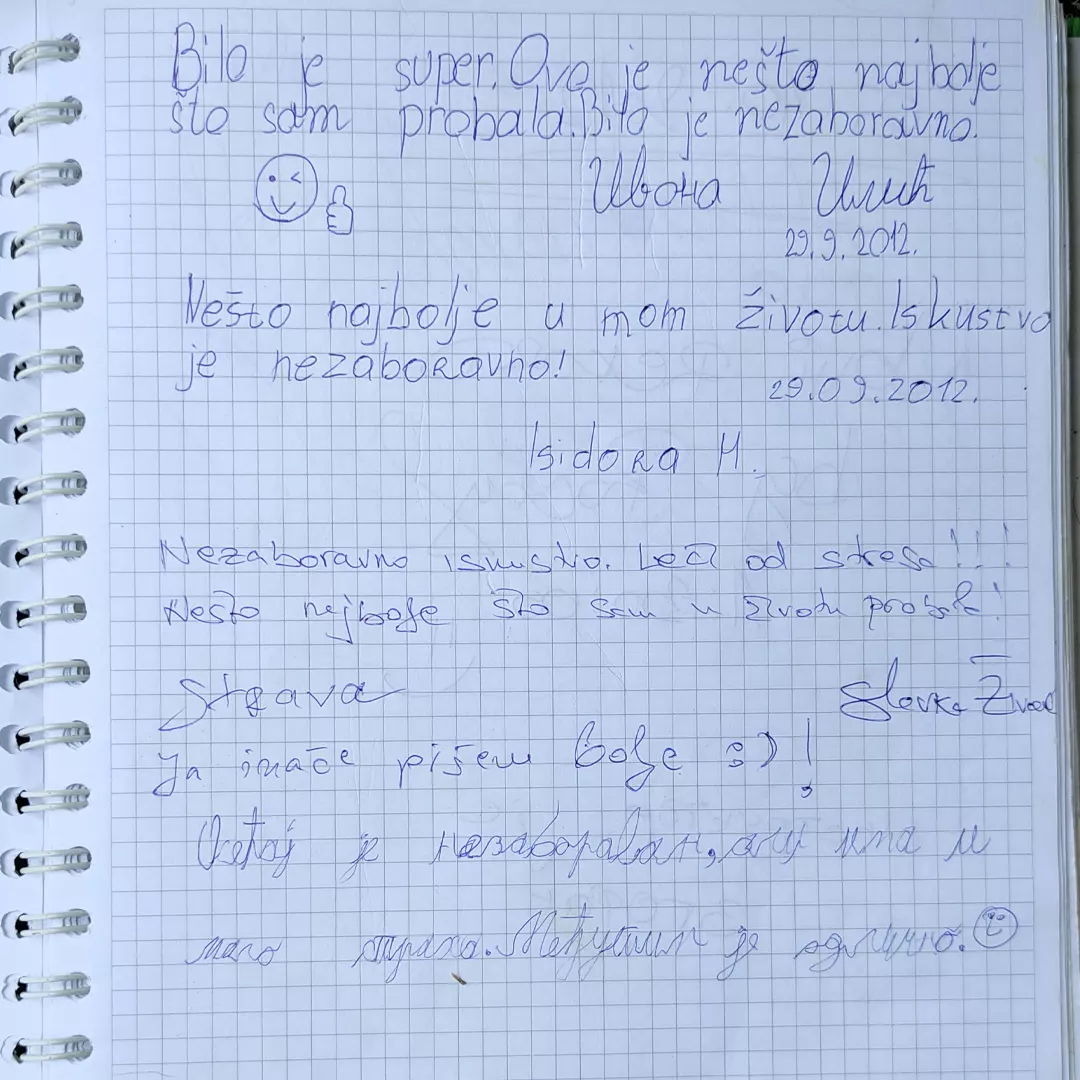 Bilo je super. Ovo je nešto najbolje
što sam probala. Bilo je nezaboravno.
Ивона Илић
29.9.2012.
Nešto najbolje u mom životu. Iskustvo
je nezaboravno!
29.09.2012.
Isidora H.
Nezaboravno iskustvo. Leči od stresa!!!
Nešto najbolje što sam u životu probala!
Strava
Slavka Živad
Ja inače pišem bolje :)!
Осећај је незабораван, али има и
мало страха. Међутим је одлично.